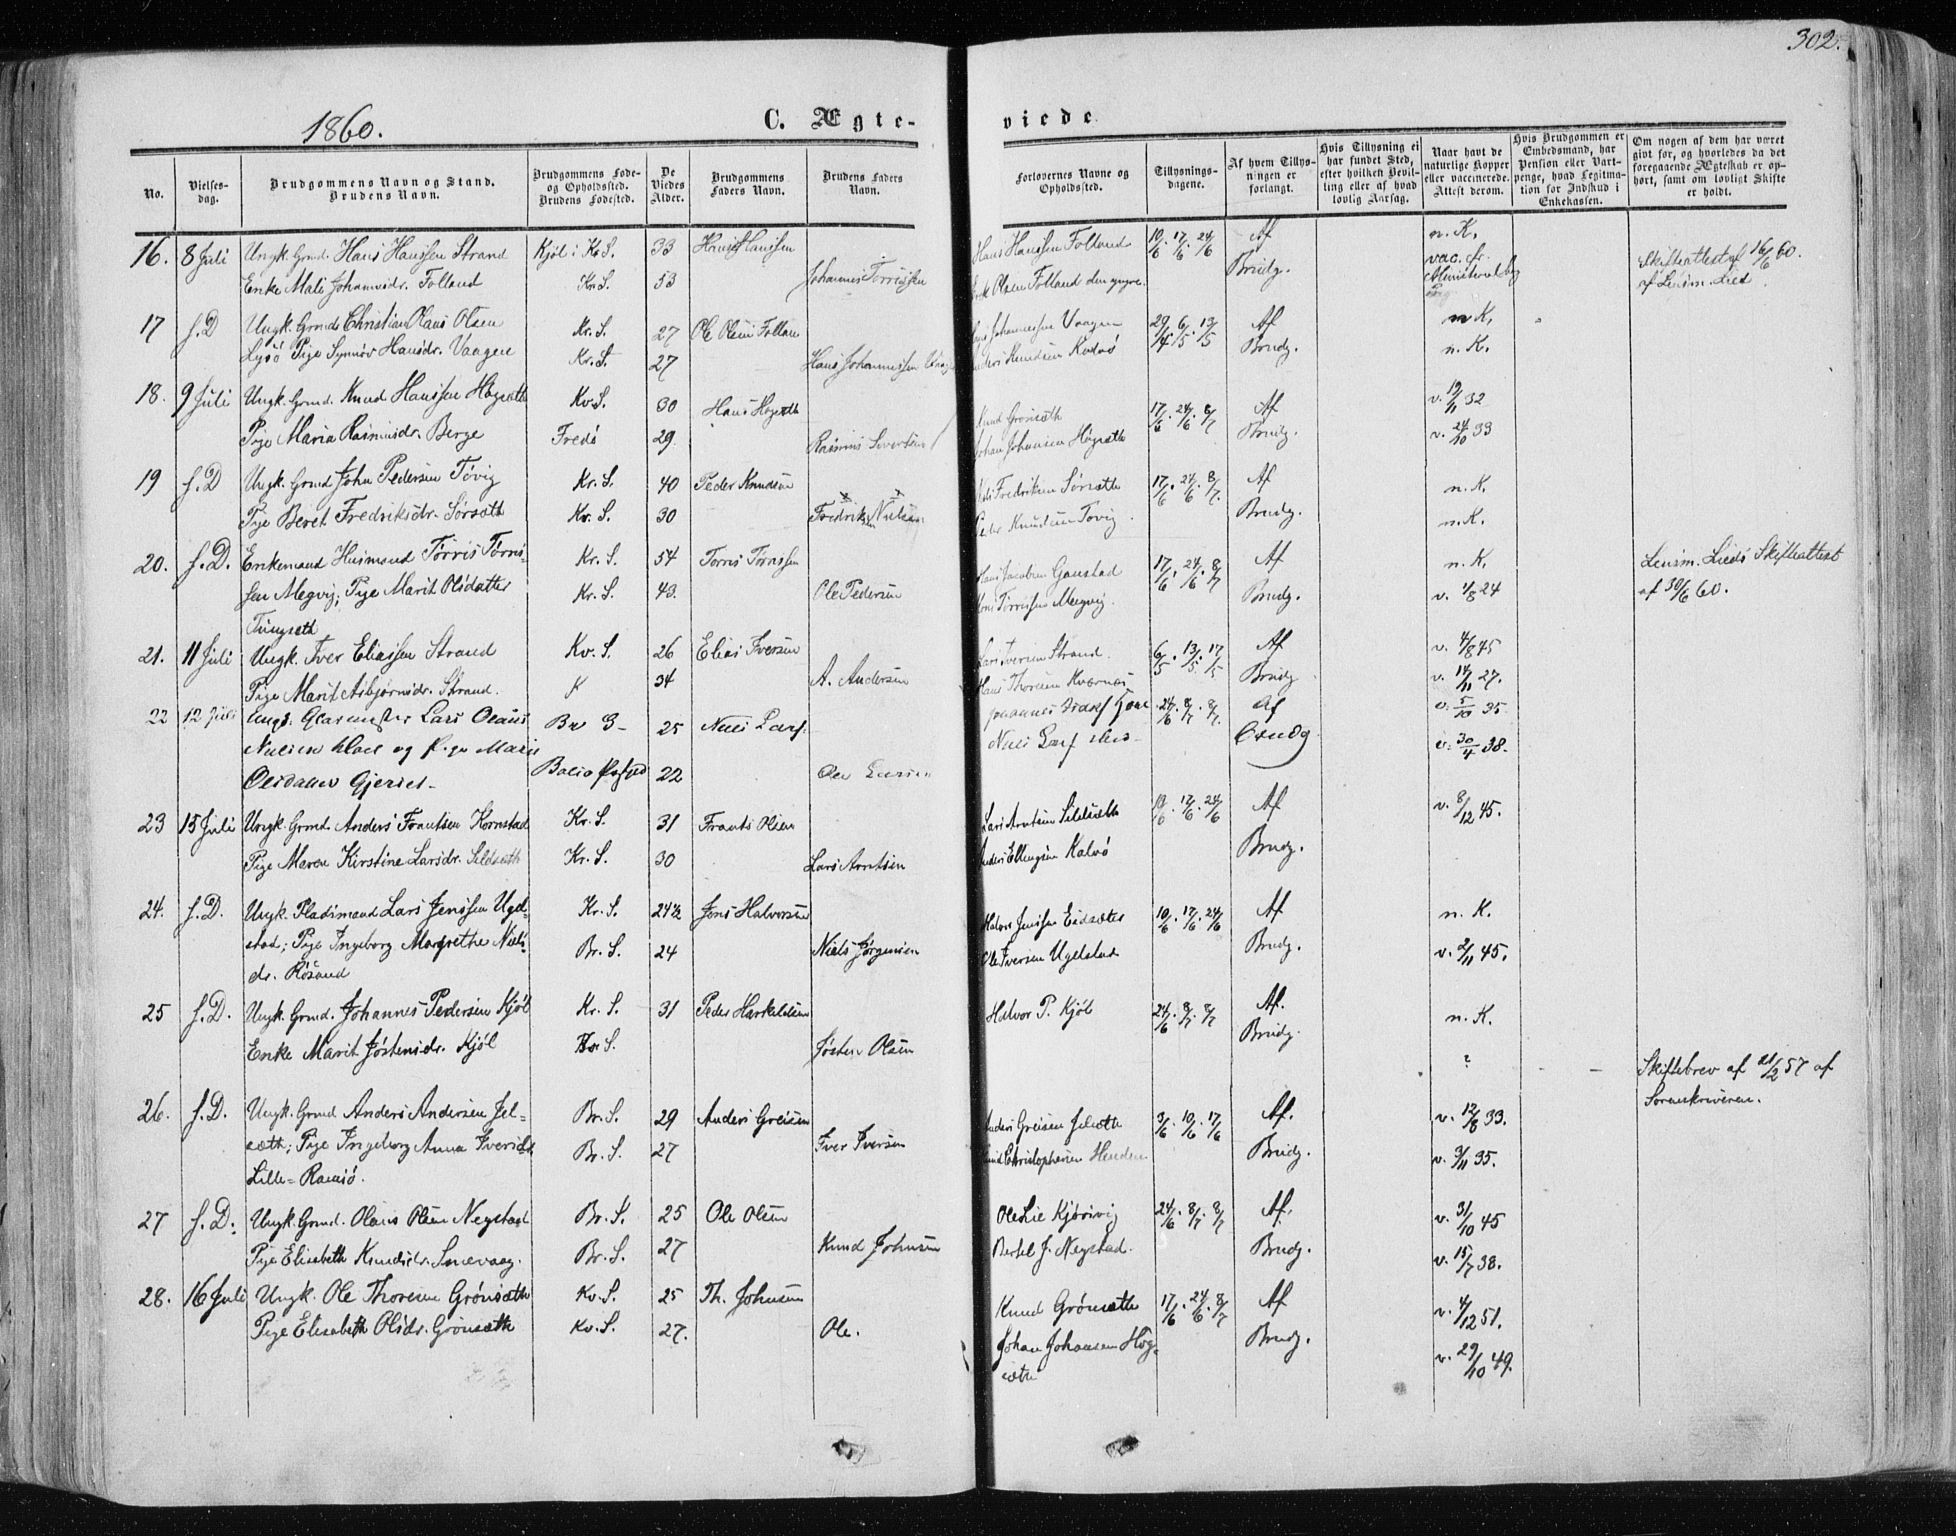 302.
1860.
C. Ægte-
viede
No.
Vielses-
dag.
Brudgommens Navn og Stand.
Brudens Navn.
Brudgommens Føde-
og Opholdssted.
Brudens Fødested.
De
Viedes
Alder.
Brudgommens
Faders Navn.
Brudens Faders
Navn.
Forlovernes Navne og
Opholdssted.
Tillysnings-
dagene.
Af hvem Tillys-
ningen er
forlangt.
Hvis Tillysning ei
har fundet Sted,
efter hvilken Bevil-
ling eller af hvad
lovlig Aarsag.
Naar havt de
naturlige Kopper
eller vaccinerede.
Attest derom.
Hvis Brudgommen er
Embedsmand, har
Pension eller Vart-
penge, hvad Legitima-
tion for Indskud i
Enkekassen.
Om nogen af dem har været
givt før, og hvorledes da det
foregaaende Ægteskab er op-
hørt, samt om lovligt Skifte
er holdt.
16. 8 Juli Ungk. Grmd. Hans Hanssen Strand Kjöl i Kr. S. 33 Hans Hanssen Hans Hanssen Folland 10/6. 17/6. 24/6 Af n. K.
Enke Mali Johannisdr. Folland Kr. S. 53 Johannes Torrissen Olsen Folland den yngre. Brudg. vac. Skifteattest af 16/6 60.
af Lensm. Lied.
17 s. D Ungk. Grmd. Christian Olaus Olsen Kr. S. 27 Ole Olsen Follan Johannessen Vaagen 29/4. 6/5. 13/5 Af n K.
Lysö Pige Synnöv Hansdr. Vaagen Kr. S. 27 Hans Johannessen Knudsen Kalvö Brudg. n. K.
18. 9 Juli Ungk. Grmd. Knud Hanssen Högsæth Kv. S. 30 Hans Högsæth Knud Grönsæth 17/6. 24/6. 8/7 Af v. 19/11 32
Pige Maria Rasmusdr. Berge Fredö 29. Rasmus Sivertsen Johan Johansen Högsæth Brudg. v. 24/10 33
19 s. D Ungk. Grmd John Pedersen Tövig Kr. S. 40 Peder Knudsen Fredriksen Sörsæth 17/6. 24/6. 8/7. Af n. K.
Pige Beret Fredriksdr. Sörsæth Kv. S. 30 Fredrik Nielsen Peder Knudsen Tovig. Brudg. n. K.
20. s. D. Enkemand Husmand Törris Törris- Kr. S. 54 Torris Törrissen Hans Jacobsen Gaustad 17/6. 24/6. 8/7 Af n. K. Lensm. Lieds Skifteattest
sen Megvig; Pige Marit Olsdatter Kr. S. 43. Ole Pedersen Törrissen Megvig. Brudg. v. 1/8 24 af 30/6 60.
Tüngsæth
21. 11 Juli Ungk. Iver Eliassen Strand Kv. S. 26 Elias Iversen Lars Iversen Strand. 6/5. 13/5. 17/5 Af v. 4/8 45
Pige Marit Asbjörnsdr. Strand. K 34 A. Andersen Hans Thoresen Kvernes Brudg v. 14/11 27.
22 12 Juli Ungk: Glarmester Lars Olaus Br S- 25 Niels Lars: Johannes 24/6. 8/7. 8/7. Af v. 5/10 35.
Nielsen og Pige Maria Niels Lars Brudg v. 30/4 38.
Olsdatter Gjerset- 22 Ole Larsen
23 15 Juli Ungk. Grmd. Anders Frantsen Kornstad Kr. S. 31 Frants Olsen Lars Arntsen Sildsæth 10/6. 17/6. 24/6 Af v. 8/12 45.
Pige Maren Kirstine Larsdr. Sildsæth Kr. S. 30 Lars Arntsen Anders Ellingsen Kalvö Brudg.
24. s. D. Ungk. Pladsmand Lars Jenssen Ugel- Kr. S. 24½ Jens Halvorsen Halvor Jenssen Eidsæter 10/6. 17/6. 24/6 Af n. K.
stad; Pige Ingeborg Margrethe Niels- Br. S. 24 Niels Jörgensen Ole Iversen Ugelstad Brudg. v. 2/11 45.
dr. Rösand
25 s. D. Ungk. Grmd. Johannes Pedersen Kjöl Kr. S. 31 Peder Harkelsen Halvor P. Kjöl 24/6. 8/7. 8/7 Af. n. K.
Enke Marit Jöstensdr. Kjöl S. Jösten Olsen Brudg. ? Skiftebrev af 21/2 57 af
Sorenskriveren.
26. s. D. Ungk. Grmd Anders Andersen Jel- Br. S. 29 Anders Greisen Anders Greisen Jelsæth 3/6. 10/6. 17/6 Af. v. 12/8 33.
sæth; Pige Ingeborg Anna Iversdr. Br. S. 27 Iver Iversen Christophersen Henden Brudg. v. 3/11 35.
Lille-Ramsö.
27 s. D. Ungk. Grmd. Olaus Olsen Negstad Br. S. 25 Ole Olsen Ole Lie Kjörsvig 24/6. 8/7. 8/7 Af. v. 31/10 45
Pige Elisabeth Knudsdr. Snevaag. Br. S. 27 Knud Johnsen Bertel J. Negstad. Brudg. v. 15/7 38.
28. 16 Juli Ungk. Ole Thoresen Grönsæth Kv. S. 25 Th. Johnsen Knud Grönsæth 17/6. 24/6. 8/7 Af v. 4/12 51.
Pige Elisabeth Olsdr. Grönsæth Kv. S. 27. Ole. Johan Johansen Hög- Brudg. v. 29/10 49.
sæth